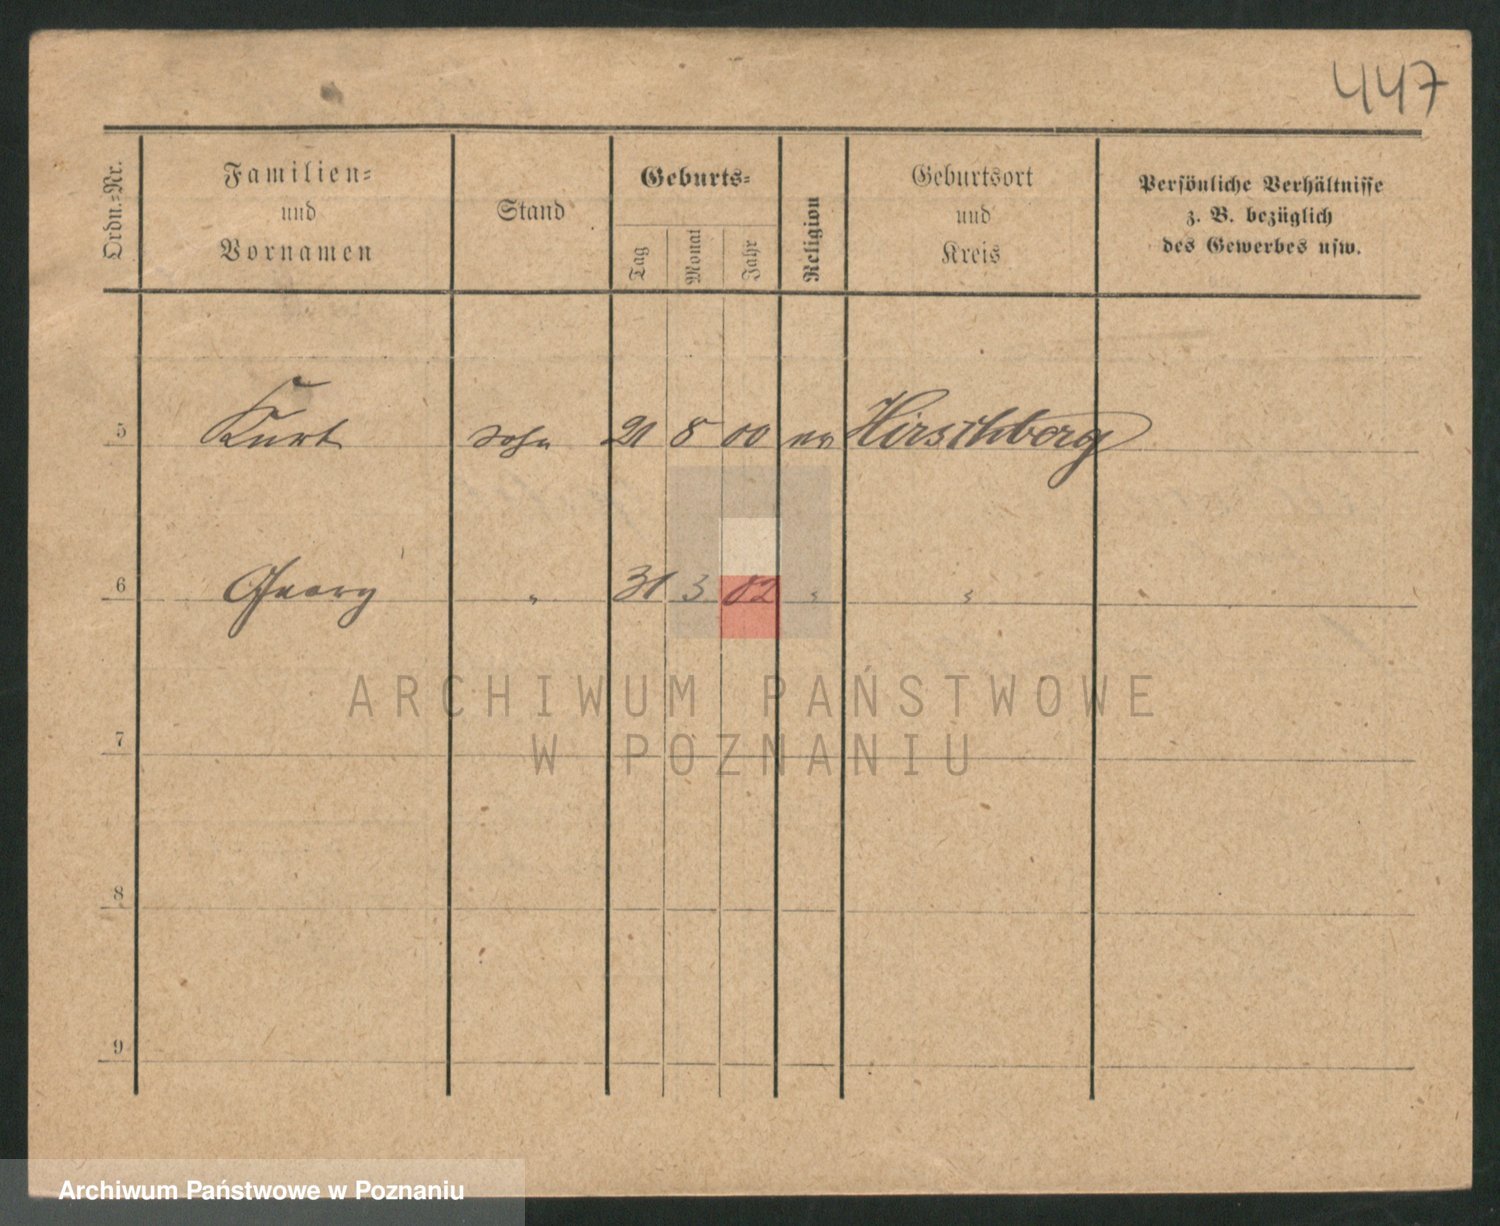 447
Ordn.=Nr.
Familien=
und
Vornamen
Stand
Geburts=
Tag
Monat
Jahr
Religion
Geburtsort
und
Kreis
Persönliche Verhältnisse
z. B. bezüglich
des Gewerbes usw.
5 Kurt Sohn 21 8 00 ev Hirschberg
6 Georg " 31 3 02 " "
7
8
9
ARCHIWUM PAŃSTWOWE
W POZNANIU
Archiwum Państwowe w Poznaniu